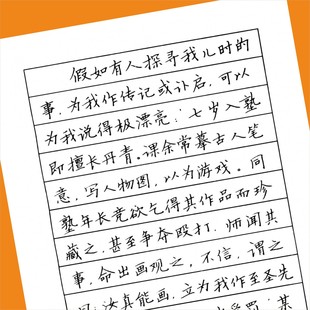 假如有人探寻我儿时的
事，为我作传记或讣启，可以
为我说得极漂亮：七岁入塾
即擅长丹青。课余常摹古人笔
意，写人物图，以为游戏。同
塾年长竞欲乞得其作品而珍
藏之，甚至争夺殴打。师闻其
事，命出画观之，不信，谓之
曰：汝真能画，立为我作至圣先